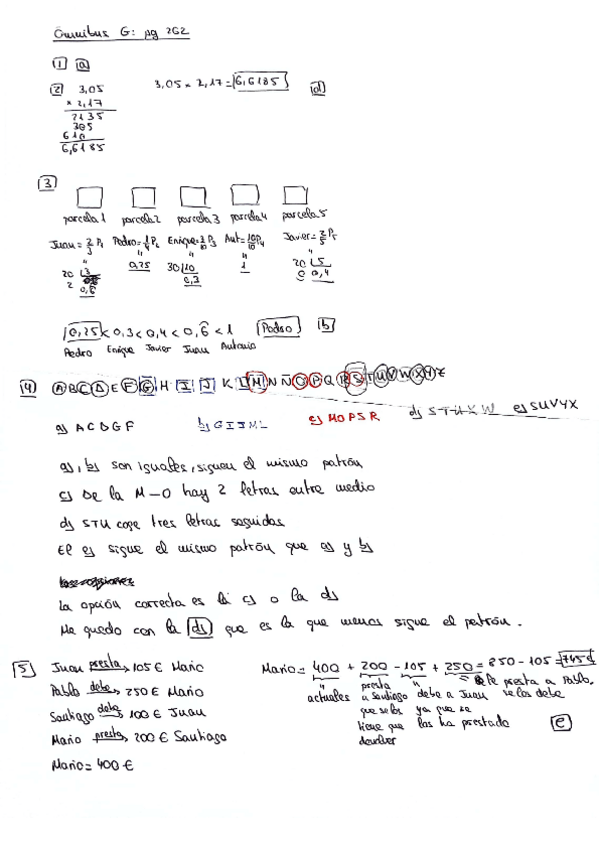 Omnibus G: pg 262
1 a
2 3,05 3,05 × 2,17 = 6,6185 d
× 2,17
2135
305
610
6,6185
3
parcela 1 parcela 2 parcela 3 parcela 4 parcela 5
Juan = 2/3 P1 Pedro = 1/4 P2 Enrique = 3/10 P3 Ant = 10/10 P4 Javier = 2/5 P5
" " " " "
20 3 0,25 30 10 1 20 5
2 0,6 0,3 0 0,4
0,25 < 0,3 < 0,4 < 0,6 < 1 Pedro b
Pedro Enrique Javier Juan Antonio
4 A B C D E F G H I J K L M N Ñ O P Q R S T U V W X Y Z
a) A C D G F b) G I J M L c) M O P S R d) S T U X W e) S U V Y X
a), b) son iguales, siguen el mismo patrón
c) De la M-O hay 2 letras entre medio
d) STU coge tres letras seguidas
El e) sigue el mismo patrón que a) y b)
La opción correcta es la c) o la d)
Me quedo con la d) que es la que menos sigue el patrón.
5 Juan presta 105 € Mario Mario = 400 + 200 - 105 + 250 = 850 - 105 = 745 €
Pablo debe 250 € Mario actuales presta a Santiago que se los tiene que devolver debe a Juan ya que se los ha prestado le presta a Pablo, se los debe
Santiago debe 100 € Juan
Mario presta 200 € Santiago e
Mario = 400 €